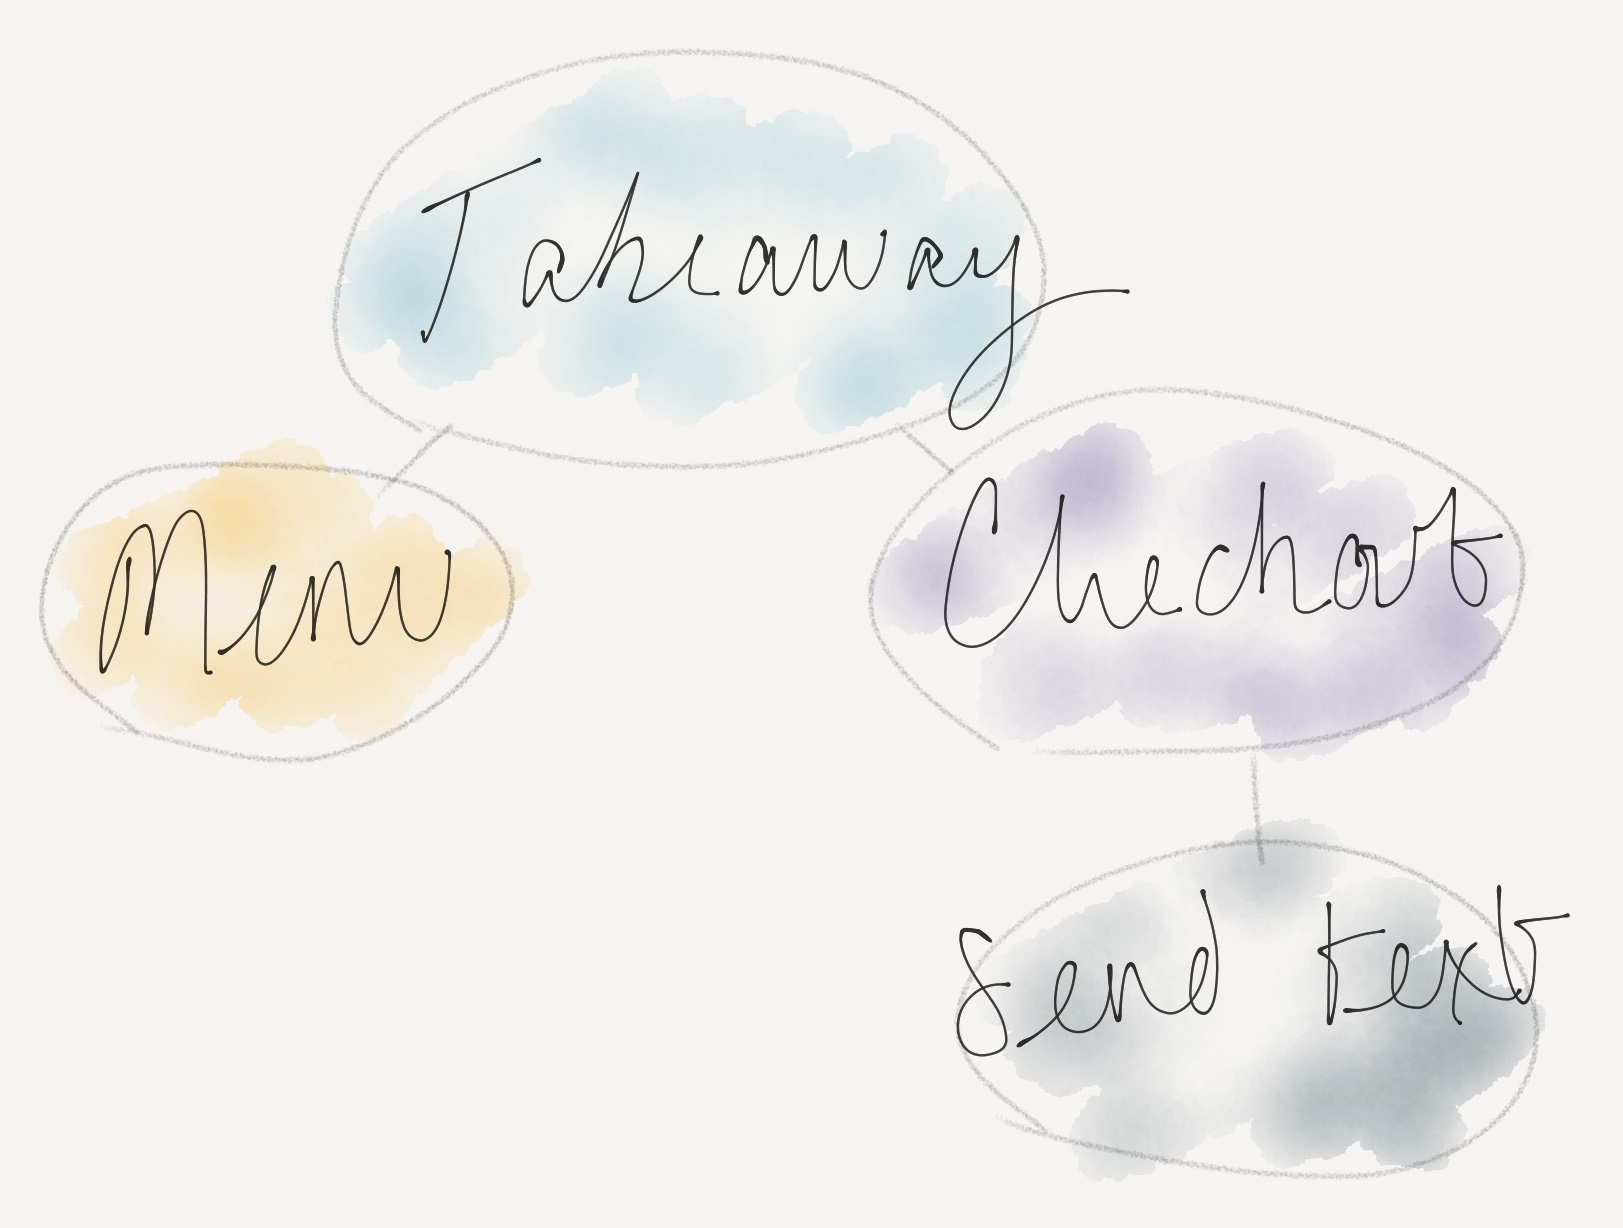 Takeaway
Menu
Checkout
Send text